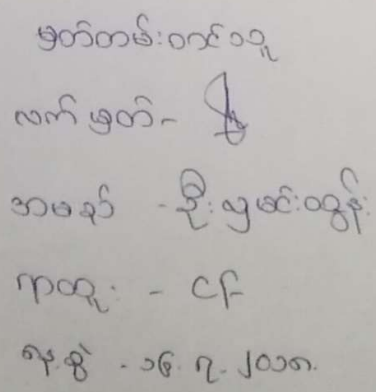 မှတ်တမ်းဝင်သူ
လက်မှတ် -
အမည် - ဦးလှမင်းထွန်း
ရာထူး - CF
ရက်စွဲ - ၁၆. ၇. ၂၀၁၈